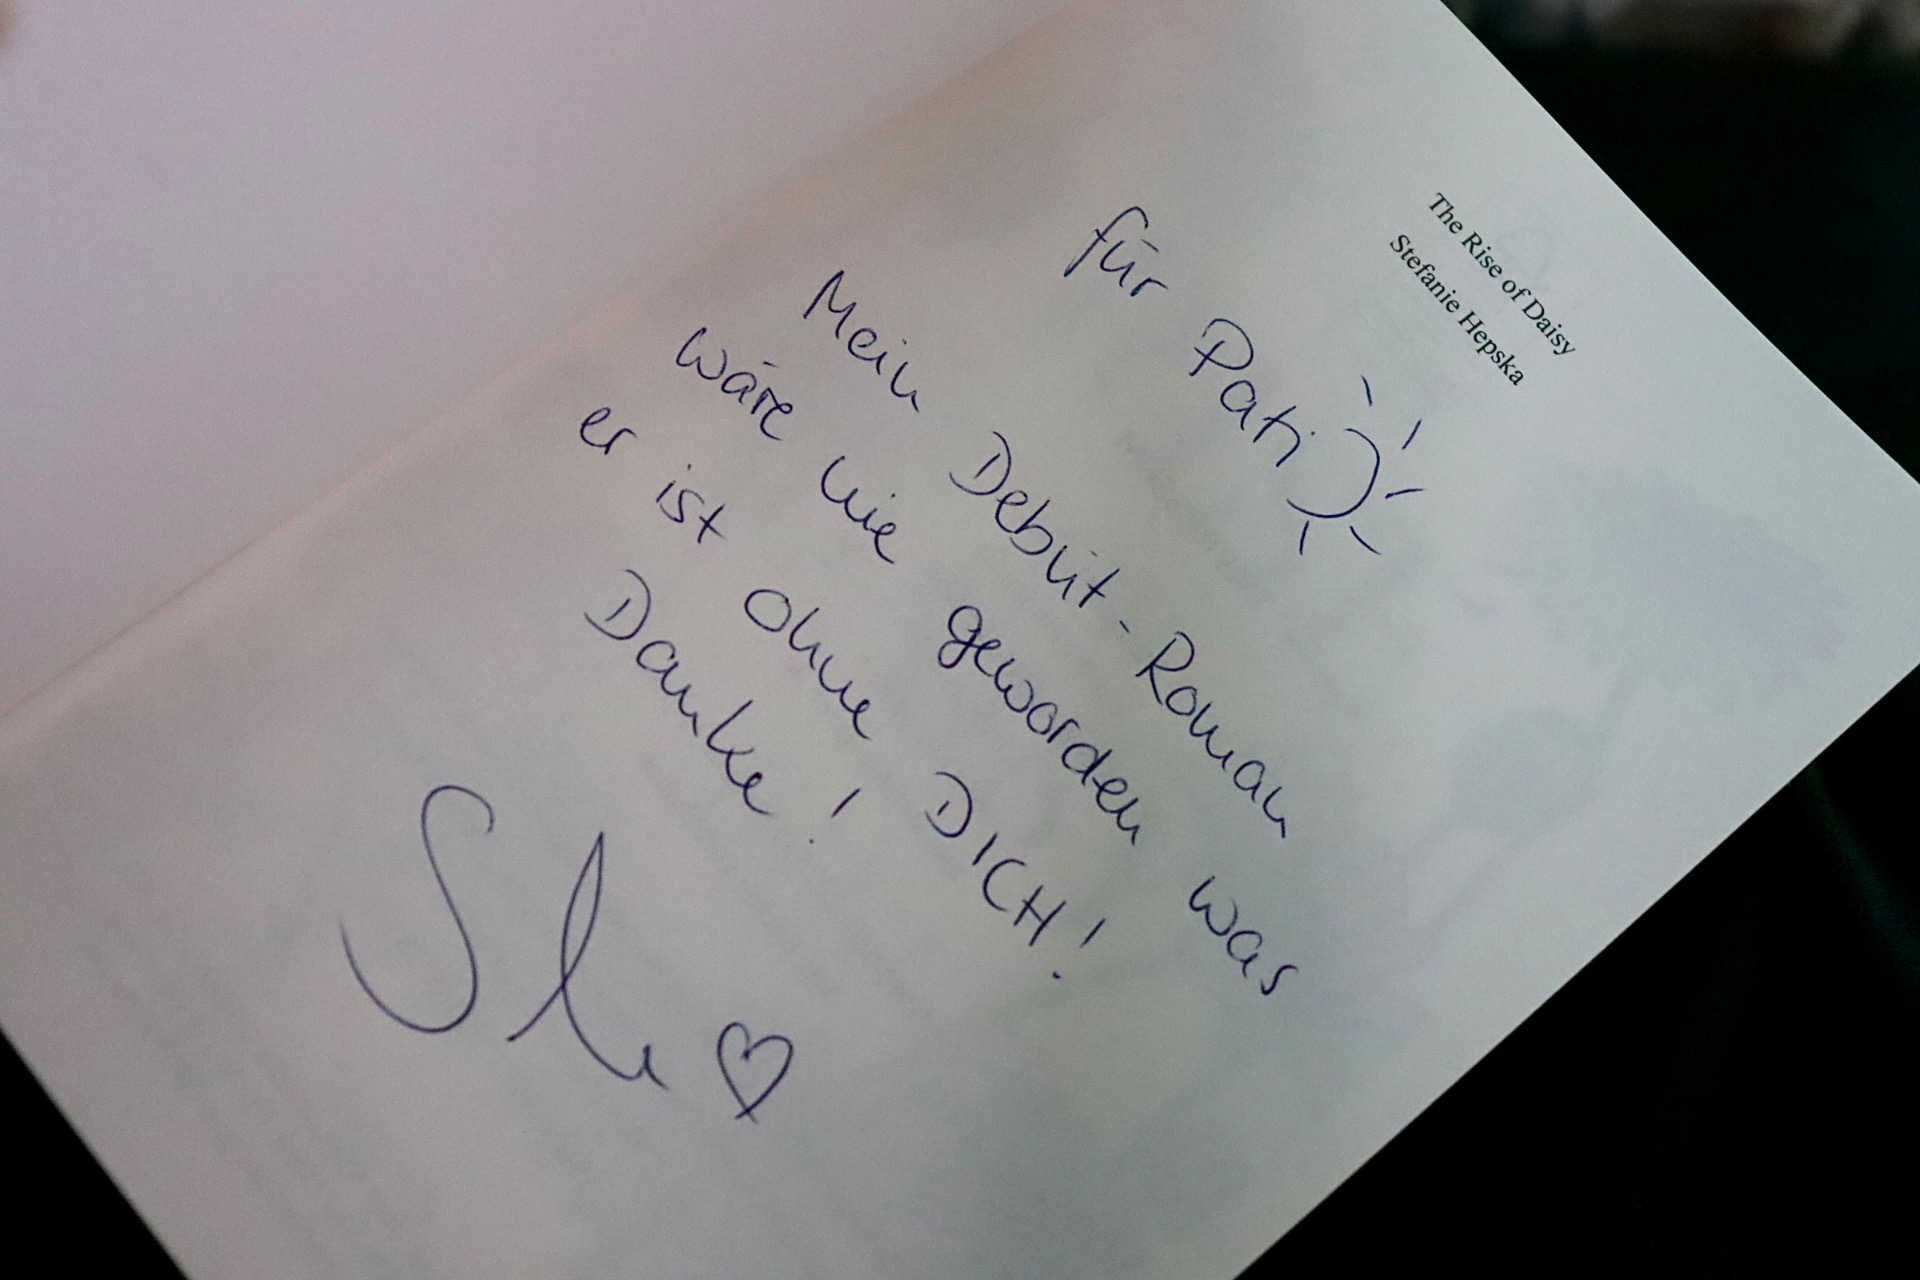 The Rise of Daisy
Stefanie Hepska
für Pati
Mein Debüt-Roman
wäre nie geworden was
er ist ohne DICH!
Danke!